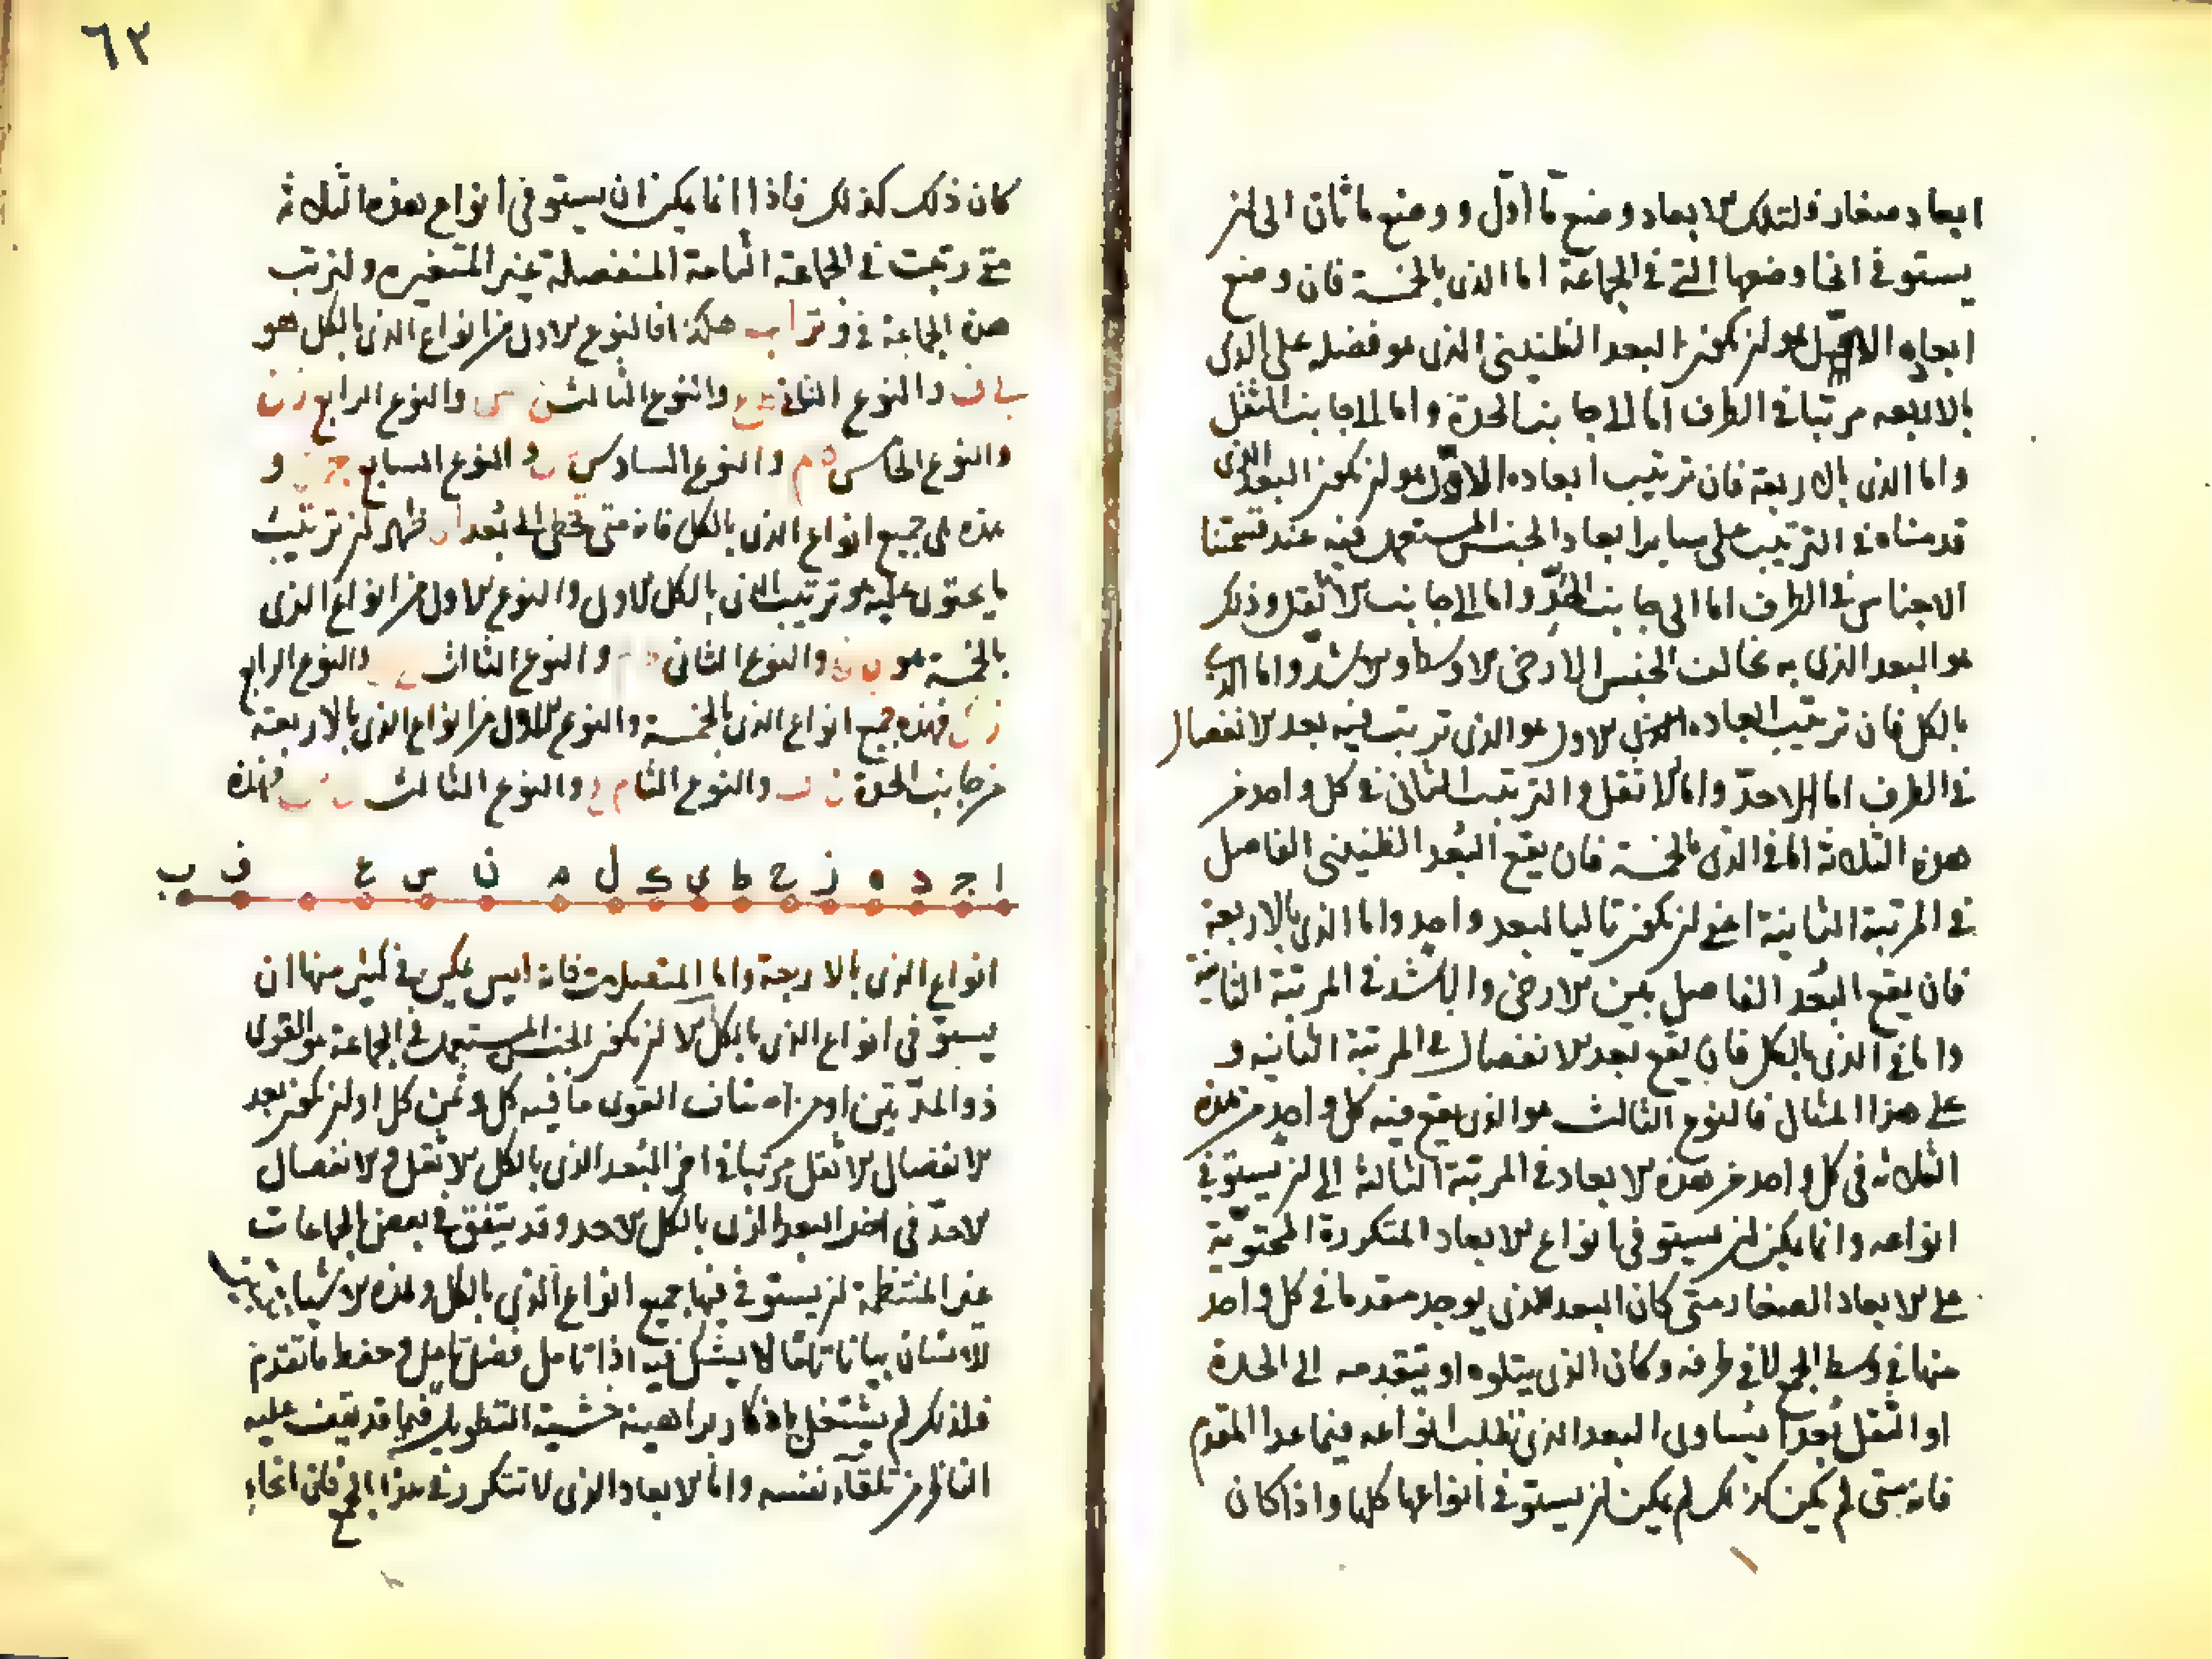 ابعاد صغار فلتلك الابعاد وضع ما أوّل ووضع ما ثان الى ان
يستوفى انحا وضعها التي في الجماعة اما الذى بالخمسة فان وضع
ابعاده الاول هو ان يكون البعد الطنينى الذى هو فضله على الذى
بالاربعه مرتبا في الطرف اما الى جانب الحدة واما الى جانب الثقل
واما الذى بالاربعة فان ترتيب ابعاده الاول هو ان يكون البعد الذى
قدمناه في الترتيب على ساير ابعاد الجنس المستعمل فيه عند قسمتنا
الاجناس في الطرف اما الى جانب الحدّ واما الى جانب الاثقل وذلك
هو البعد الذى به يخالف الجنس الارخى الاوسط والاشدّ واما الذى
بالكل فان ترتيب ابعاده الاول هو الذى ترتب فيه بعد الانفصال
في الطرف اما الاحدّ واما الاثقل والترتيب الثانى في كل واحد من
هذه الثلاثة اما في الذى بالخمسة فان يقع البُعد الطنينى الفاصل
في المرتبة الثانية اعني ان يكون تاليا لبعد واحد واما الذى بالاربعة
فان يقع البُعد الفاصل بين الارخى والاشد في المرتبة الثانية
واما في الذى بالكل فان يقع بعد الانفصال في المرتبة الثانيه و
على هذا المثال فالنوع الثالث هو الذى يقع فيه كل واحد من هذه
الثلاثه في كل واحد من هذه الابعاد في المرتبة الثالثة الى ان يستوفى
انواعه وانما يمكن ان يستوفى انواع الابعاد المتكررة المحتوية
على الابعاد الصغار متى كان البعد الذى يوجد مقدما في كل واحد
منها في وسط الجمع لا في طرفه وكان الذى يتلوه او يتقدمه الى الحدة
او الثقل بُعدا يساوى البعد الذى تطلب انواعه فيما عدا المقدم
فانه متى لم يكن كذلك لم يمكن ان يستوفى انواعها كلها واذا كان
٦٢
كان ذلك كذلك فاذا انما يمكن ان يستوفى انواع هذه الثلاثه
متى رتبت في الجماعة التامة المنفصلة غير المتغيره ولنرتب
هذه الجماعة في وتر ا ب هكذا فالنوع الاول من انواع الذى بالكل هو
والنوع الثانى والنوع الثالث والنوع الرابع
والنوع الخامس ه م والنوع السادس والنوع السابع و
هذه هى جميع انواع الذى بالكل فانه متى تخطى الى بُعد ظهر ان ترتيب
ما يحتوى عليه هو ترتيب الذى بالكل الاول والنوع الاول من انواع الذى
بالخمسة هو والنوع الثانى والنوع الثالث والنوع الرابع
فهذه جميع انواع الذى بالخمسة والنوع الاول من انواع الذى بالاربعة
من جانب الحدة والنوع الثا والنوع الثالث فهذه
ا ج د ه ز ح ط ى ك ل م ن س ع ف ب
انواع الذى بالاربعة واما المتصلات فانه ليس يمكن في كثير منها ان
يستوفى انواع الذى بالكل الا ان يكون الجنس المستعمل في الجماعة هو القوى
ذو المدتين او من اصناف القوى ما فيه كل وثمن كل او ان يكون بعد
الانفصال الاثقل مرتبا في اخر البُعد الذى بالكل الاثقل والانفصال
الاحدّ في اخر البعد الذى بالكل الاحد وقد يتفق في بعض الجماعات
غير المنتظمة ان يستوفى فيها جميع انواع الذى بالكل وهذه الاشيا
للانسان بيانا تاما لا يشك فيه اذا تامل فضل تامل وحفظ ما تقدم
فلذلك لم يشتغل باذكار براهينه خشية التطويل فيما قد يقف عليه
الناظر من تلقآء نفسه واما الابعاد الذى لا تتكرر في هذا الجمع فان انحاء